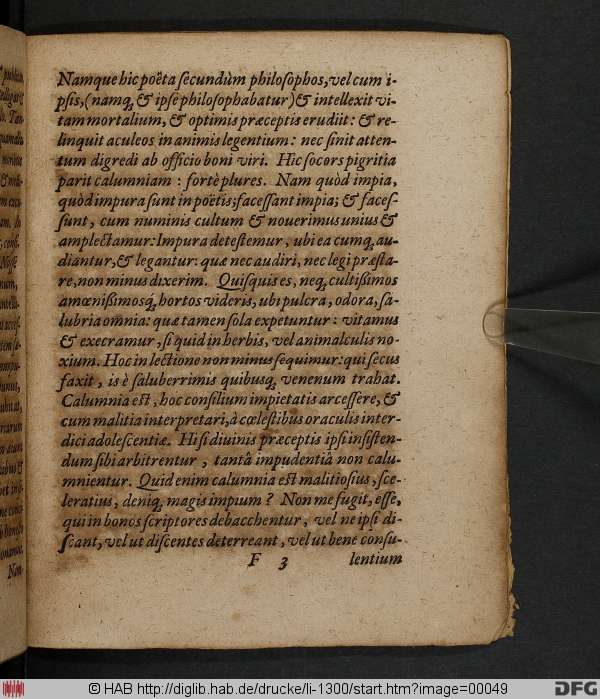 Namque hic poëta secundùm philosophos, vel cum i-
psis, (namq́; & ipse philosophabatur) & intellexit vi-
tam mortalium, & optimis præceptis erudiit: & re-
linquit aculeos in animis legentium: nec sinit atten-
tum digredi ab officio boni viri. Hic socors pigritia
parit calumniam: fortè plures. Nam quòd impia,
quòd impura sunt in poëtis; facessant impia; & faces-
sunt, cum numinis cultum & nouerimus unius &
amplectamur: Impura detestemur, ubi ea cumq́; au-
diantur, & legantur: quæ nec audiri, nec legi præsta-
re, non minus dixerim. Quisquis es, neq́; cultissimos
amœnissimosq́; hortos videris, ubi pulcra, odora, sa-
lubria omnia: quæ tamen sola expetuntur: vitamus
& execramur, si quid in herbis, vel animalculis no-
xium. Hoc in lectione non minus sequimur: qui secus
faxit, is è saluberrimis quibusq́; venenum trahat.
Calumnia est, hoc consilium impietatis arcessere, &
cum malitia interpretari, à cœlestibus oraculis inter-
dici adolescentiæ. Hi si diuinis præceptis ipsi insisten-
dum sibi arbitrentur, tantâ impudentiâ non calu-
mnientur. Quid enim calumnia est malitiosius, sce-
leratius, deniq́; magis impium? Non me fugit, esse,
qui in bonos scriptores debacchentur, vel ne ipsi di-
scant, vel ut discentes deterreant, vel ut bene consu-
F 3 lentium
© HAB http://diglib.hab.de/drucke/li-1300/start.htm?image=00049
DFG